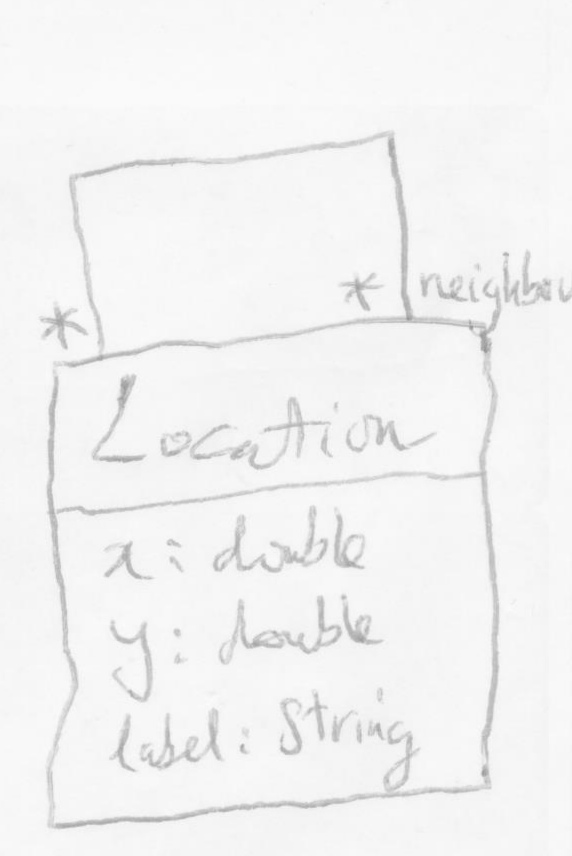 * neighbou
*
Location
x: double
y: double
label: String